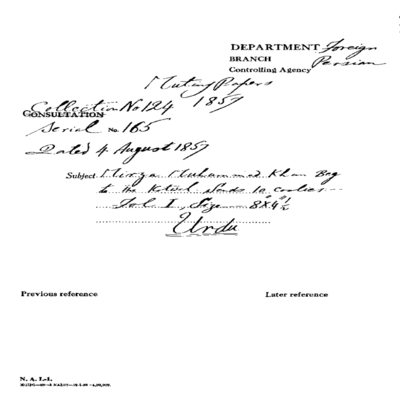 DEPARTMENT Foreign
BRANCH Persian
Controlling Agency
Mutiny Papers
Collection No 124 1857
CONSULTATION
Serial No. 165
Dated 4 August 1857
Subject Mirza Muhammed Khan Beg
to the Kotwal sends 10 coolies
Fol. I, Size 8"X4½"
Urdu
Previous reference Later reference
N. A. I.-I.